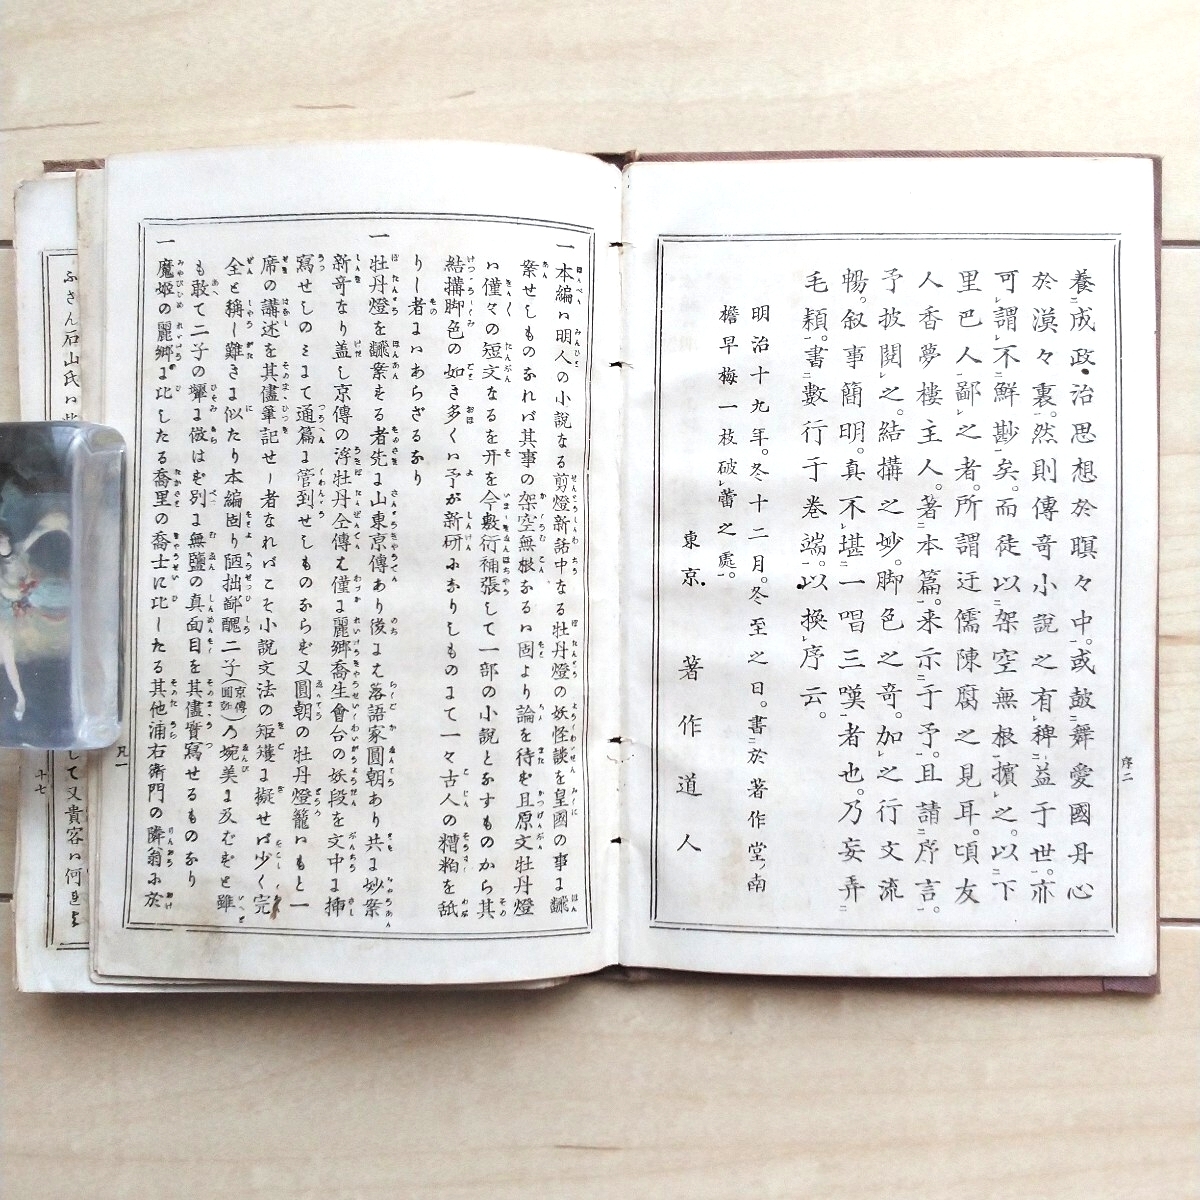 養成政治思想於瞑々中。或鼓舞愛國丹心
於漠々裏。然則傳奇小說之有稗益于世。亦
可謂不鮮尠矣。而徒以架空無根擯之。以下
里巴人鄙之者。所謂迂儒陳腐之見耳。頃友
人香夢樓主人。著本篇。来示于予。且請序言。
予披閱之。結搆之妙。脚色之奇。加之行文流
暢。叙事簡明。真不堪一唱三嘆者也。乃妄弄
毛穎。書數行于巻端。以換序云。
明治十九年。冬十二月。冬至之日。書於著作堂南
檐早梅一枝破蕾之處。
東京 著作道人
序二
一本編ハ明人の小説なる剪燈新話中なる牡丹燈の妖怪談を皇國の事に飜
案せしものなれバ其事の架空無根なるハ固より論を待ず且原文牡丹燈
ハ僅々の短文なるを开を今敷衍補張して一部の小説となすものから其
結搆脚色の如き多くハ予が新研になりしものにて一々古人の糟粕を舐
りし者にハあらざるなり
一牡丹燈を飜案する者先に山東京傳あり後にハ落語家圓朝あり共に妙案
新奇なり盖し京傳の浮牡丹全傳ハ僅に麗郷喬生會合の妖段を文中に挿
寫せしのミにて通篇に管到せしものならず又圓朝の牡丹燈籠ハもと一
席の講述を其儘筆記せし者なれバこそ小説文法の矩矱に擬せバ少く完
全と稱し難きに似たり本編固り陋拙鄙醜二子(京傳圓朝)の婉美に及むずと雖
も敢て二子の顰に傚はず別に無鹽の真面目を其儘實寫せるものなり
一魔姫の麗郷に比したる喬里の喬士に比したる其他浦右衛門の隣翁に於
凡一
ふさん石山氏ハ
して又貴客ハ何
十七